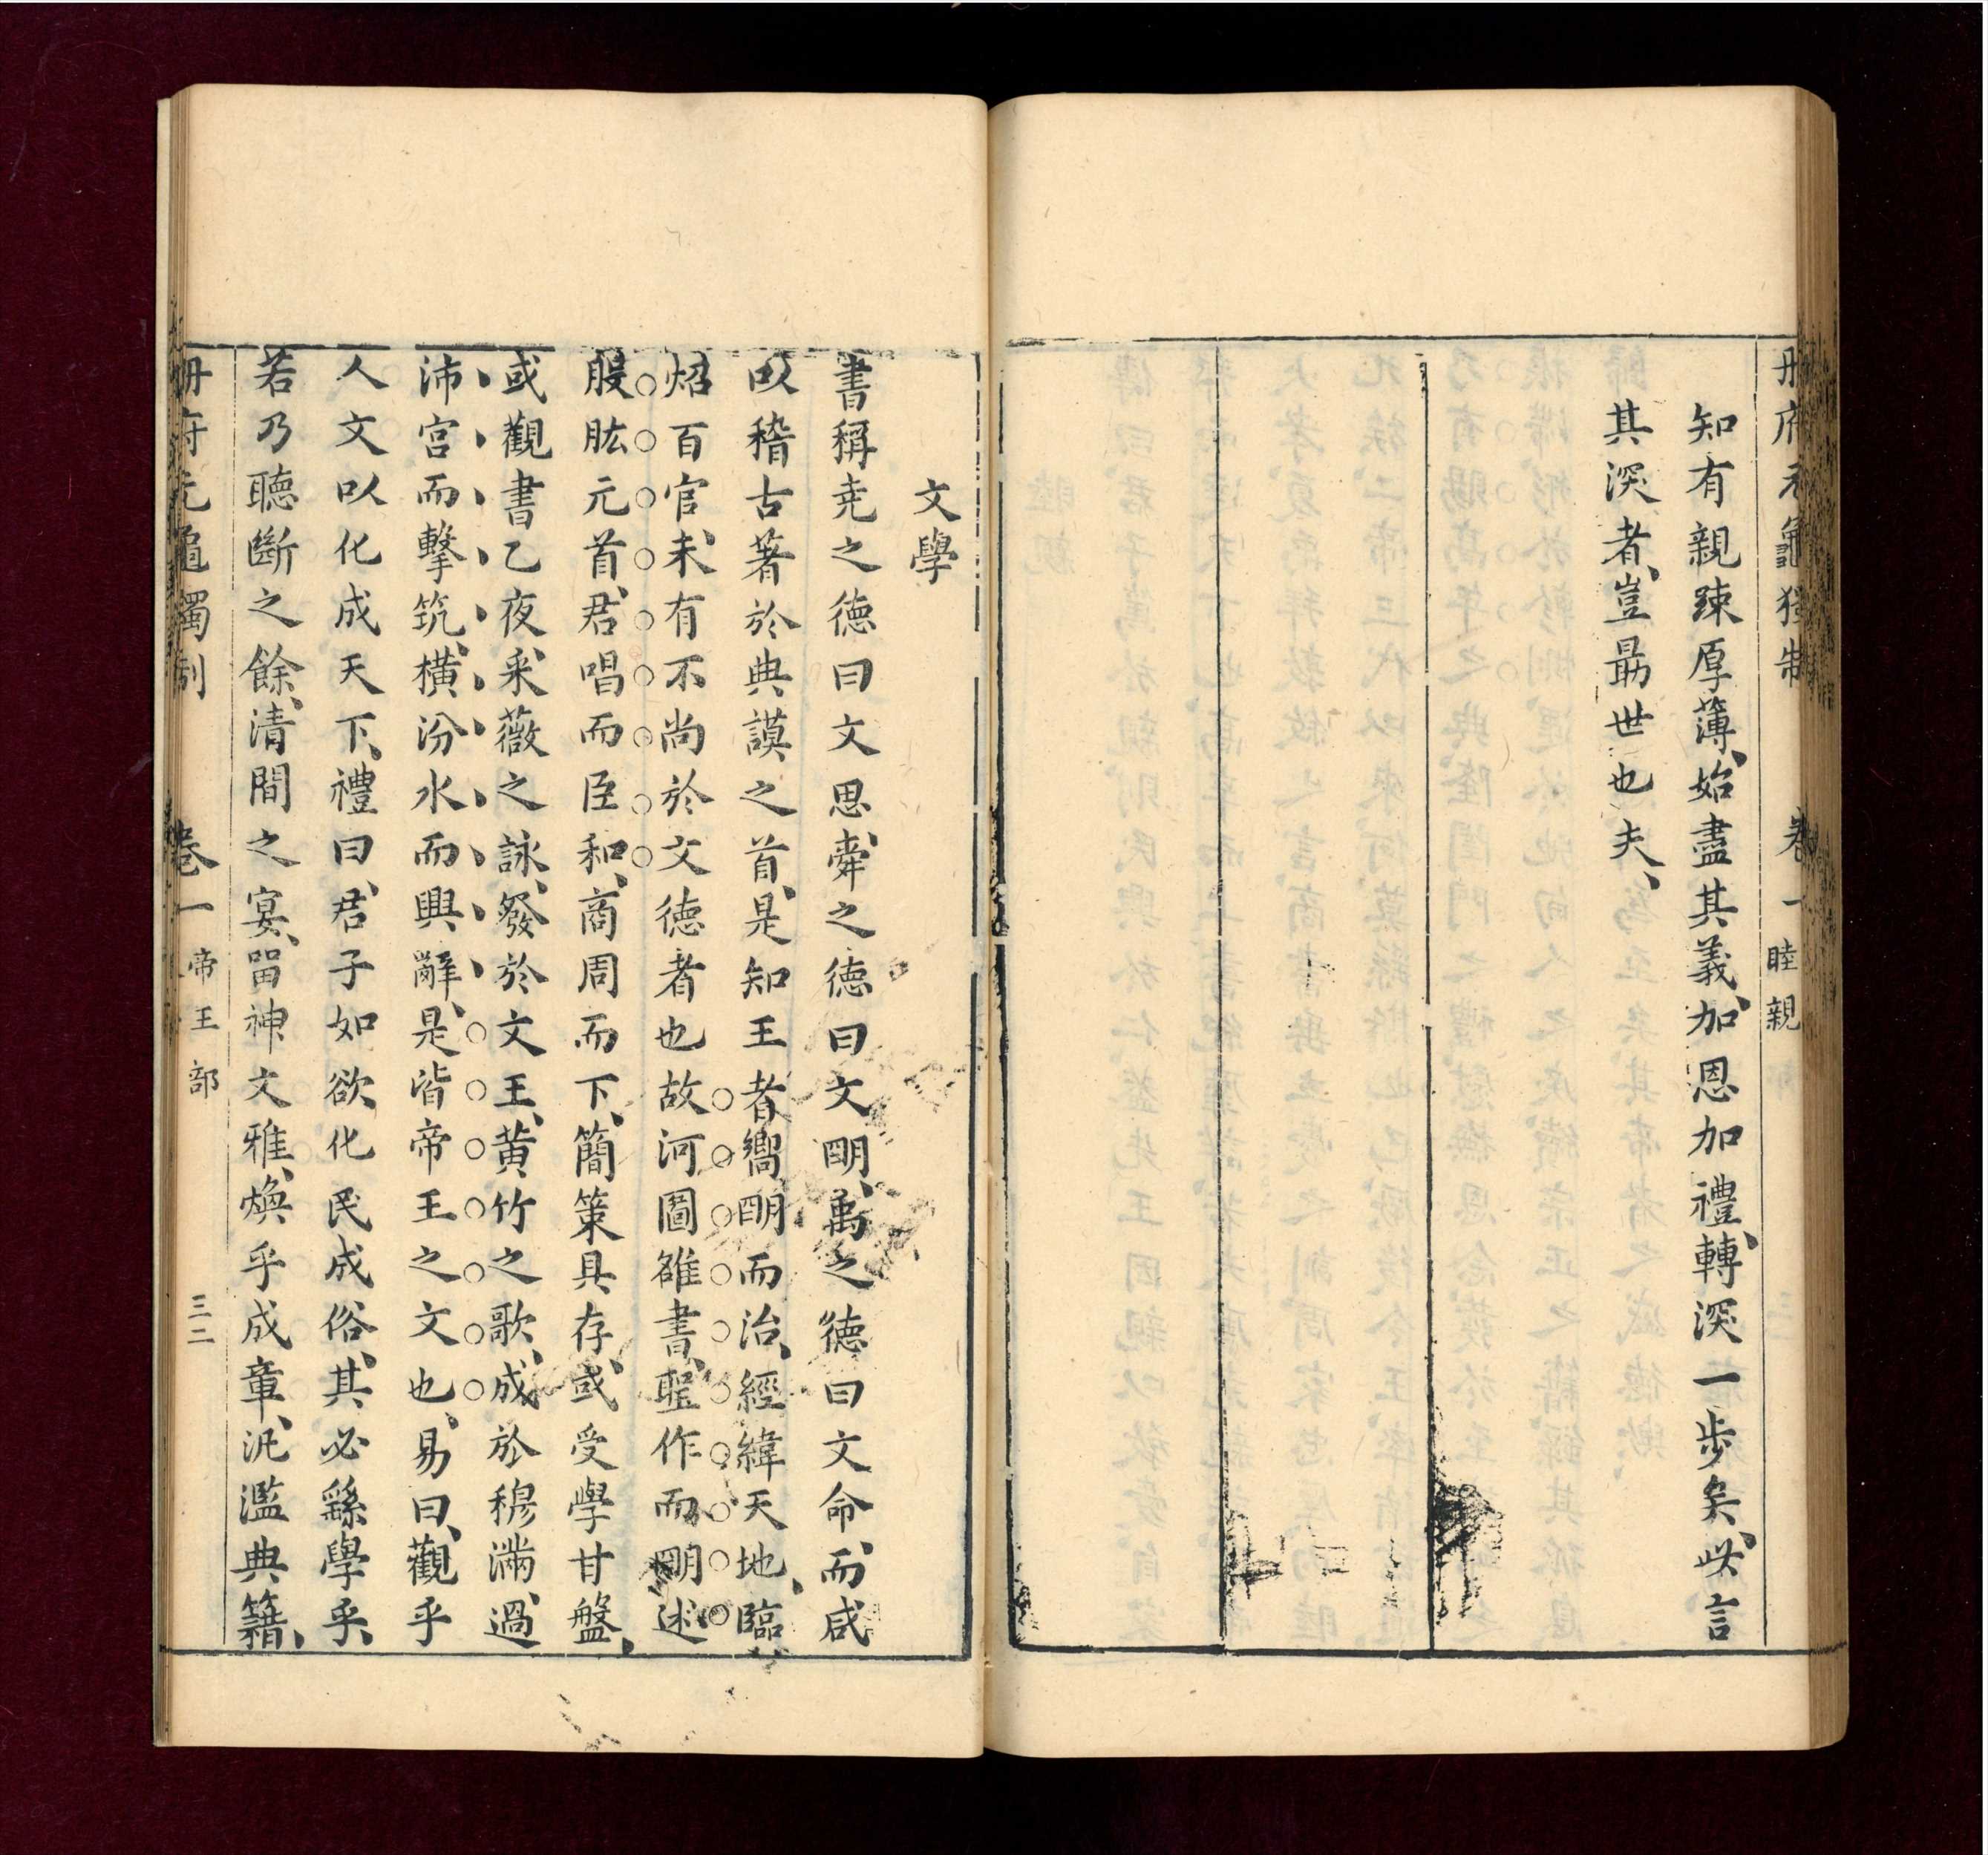 册府元龜獨制 卷一 睦親
知有親疎厚薄、始盡其義、加恩加禮、轉深一步矣、此言
其深者、豈最世也夫、
文學
書稱尭之德曰文思、舜之德曰文明、禹之德曰文命、而咸
㕥稽古著於典謨之首、是知王者嚮明而治、經緯天地、臨
炤百官、未有不尚於文德者也故河圖雒書、聖作而明述
股肱元首、君唱而臣和、商周而下、簡策具存、或受學甘盤、
或觀書乙夜、采薇之詠、發於文王、黄竹之歌、成於穆滿、過
沛宮而擊筑、橫汾水而興辭、是皆帝王之文也、易曰、觀乎
人文以化成天下、禮曰、君子如欲化民成俗、其必繇學乎、
若乃聽斷之餘、清閒之宴、留神文雅、煥乎成章、汎濫典籍、
册府元龜獨制 卷一 帝王部 三二